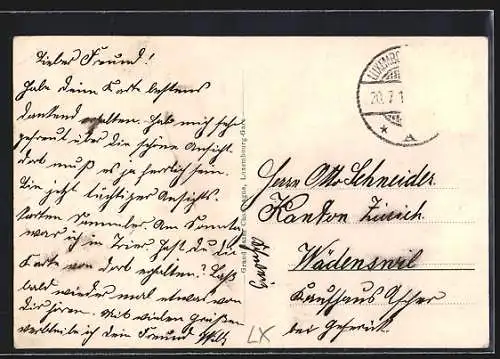 Lieber Freund!
Habe Deine Karte bestens
dankend erhalten. Hab mich sehr
gefreut über die schöne Ansicht.
Dort muß es ja herrlich sein.
Bin jetzt tüchtiger Ansichts-
karten Sammler. Am Sonntag
war ich in Trier. Hast Du die
Karte von dort erhalten? Laß
bald wieder mal etwas von
Dir hören. Mit vielen Grüßen
verbleibe ich Dein Freund Willi
Grand Luxembourg-Gare
LUXEMBO
20.7.1
* A
Herrn Otto Schneider
Kanton Zürich
Schweiz
Wädenswil
Kaufhaus
bei
LX